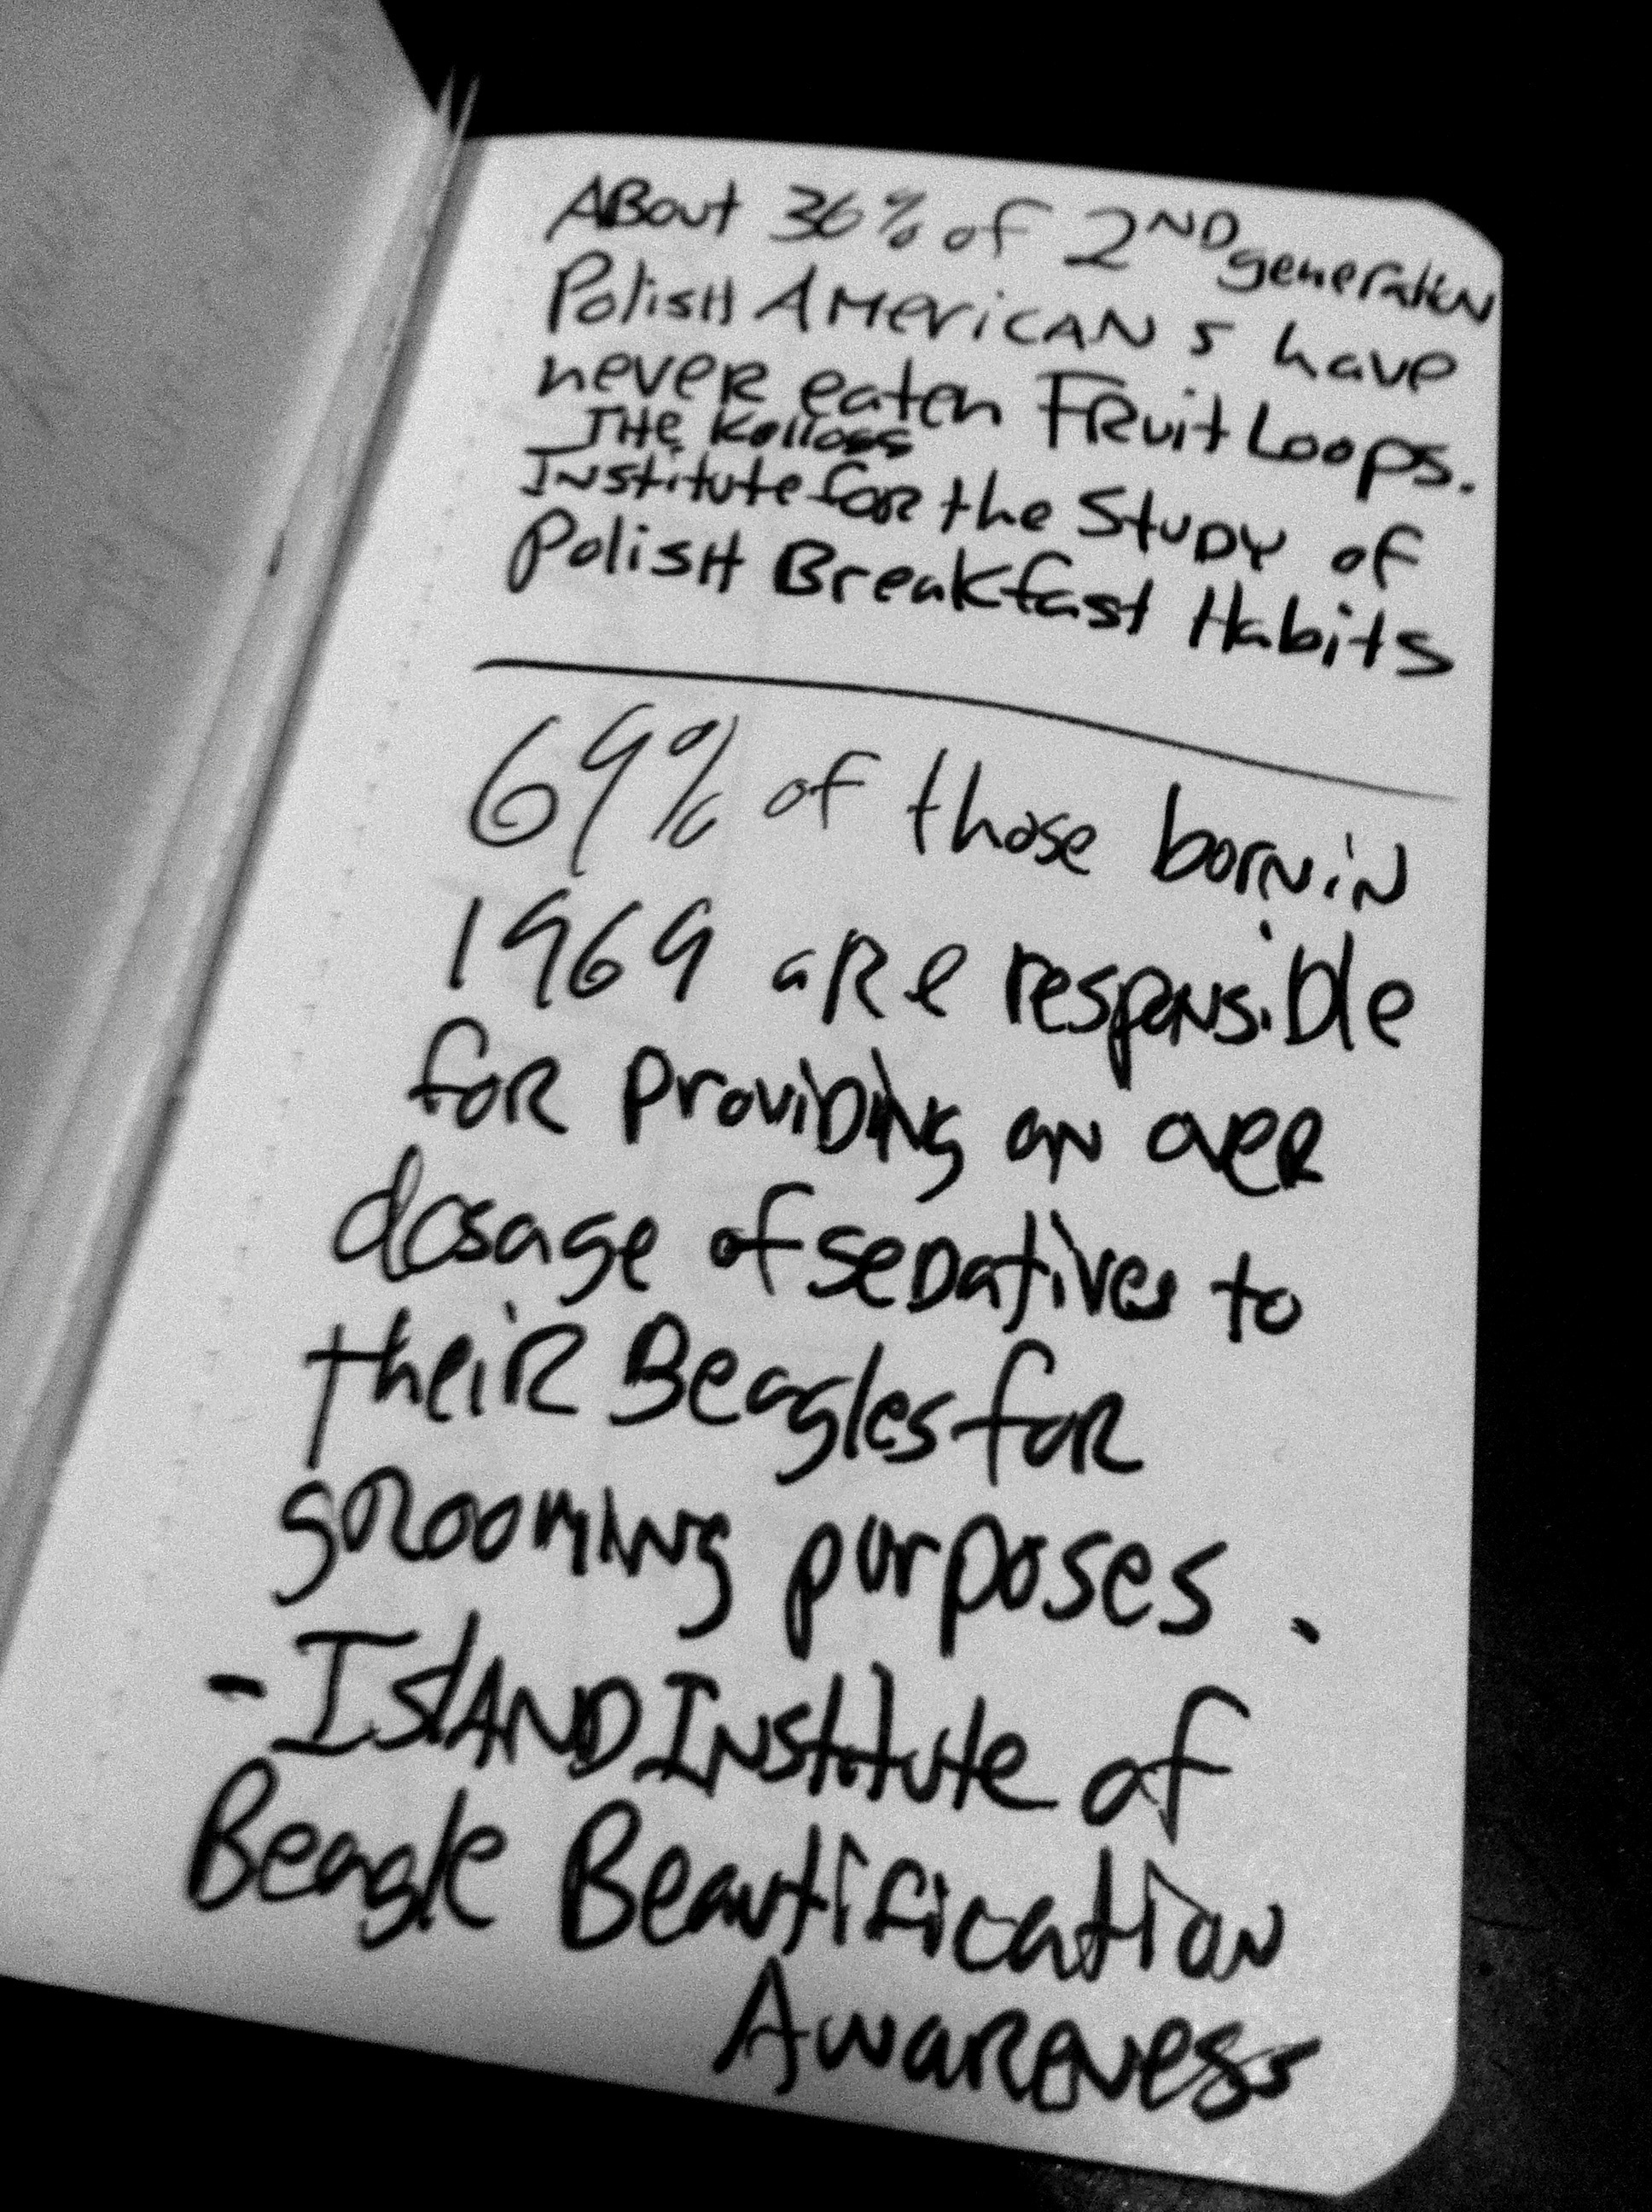 ABout 36% of 2ND generation
Polish AMericANs have
never eaten FRuit Loops.
THe Kelloss
Institute foR the StuDy of
PolisH Breakfast Habits
69% of those born iN
1969 aRe responsible
foR proviDiNg aN oveR
dosage of seDatives to
theiR Beagles foR
gRooming purposes.
- IslAND INstitute of
Beagle Beautification
AwaReNess